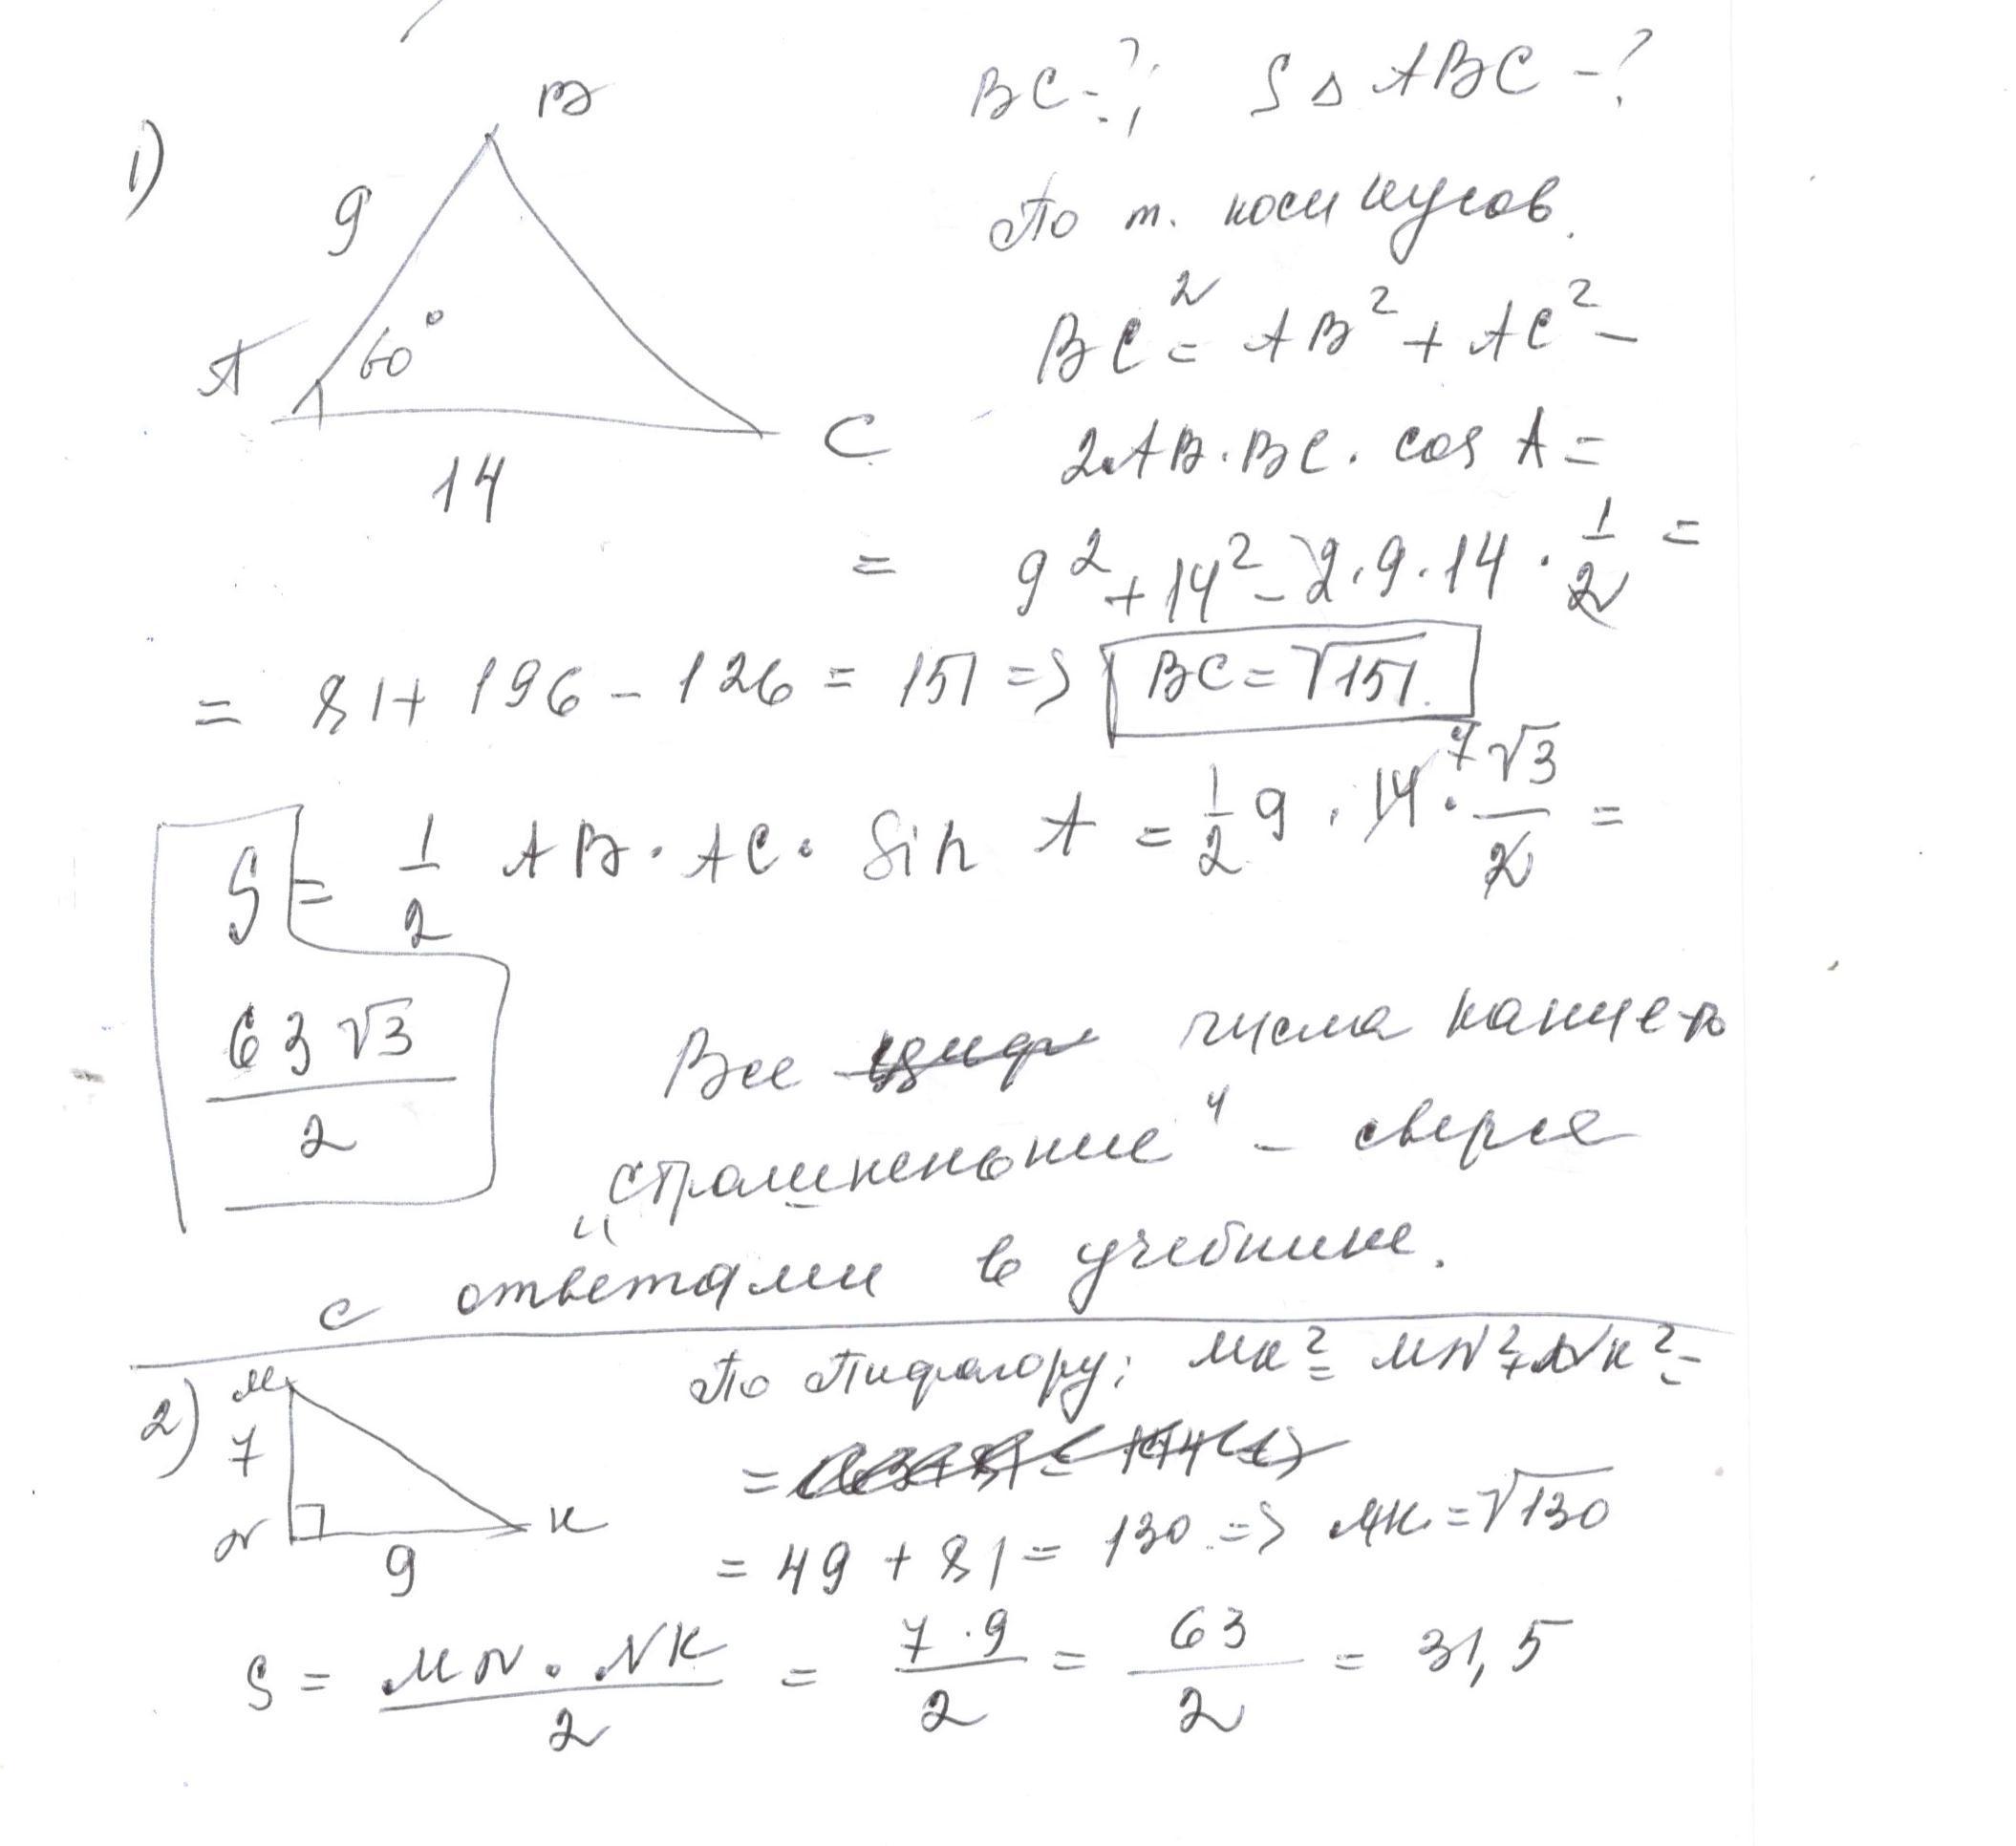 1)
B
9
A
60°
C
14
BC = ?; S △ ABC - ?
По т. косинусов.
BC² = AB² + AC² -
2·AB·BC·cos A =
= 9² + 14² - 2·9·14·1/2 =
= 81 + 196 - 126 = 151 => BC = √151.
S = 1/2 AB·AC·sin A = 1/2 9·14·7 √3/2 =
63√3/2
Все числа какие-то
„страшненькие" - сверься
с ответами в учебнике.
2)
M
7
N
9
K
По Пифагору: MK² = MN² + NK² =
=
= 49 + 81 = 130 => MK = √130
S = MN·NK/2 = 7·9/2 = 63/2 = 31,5